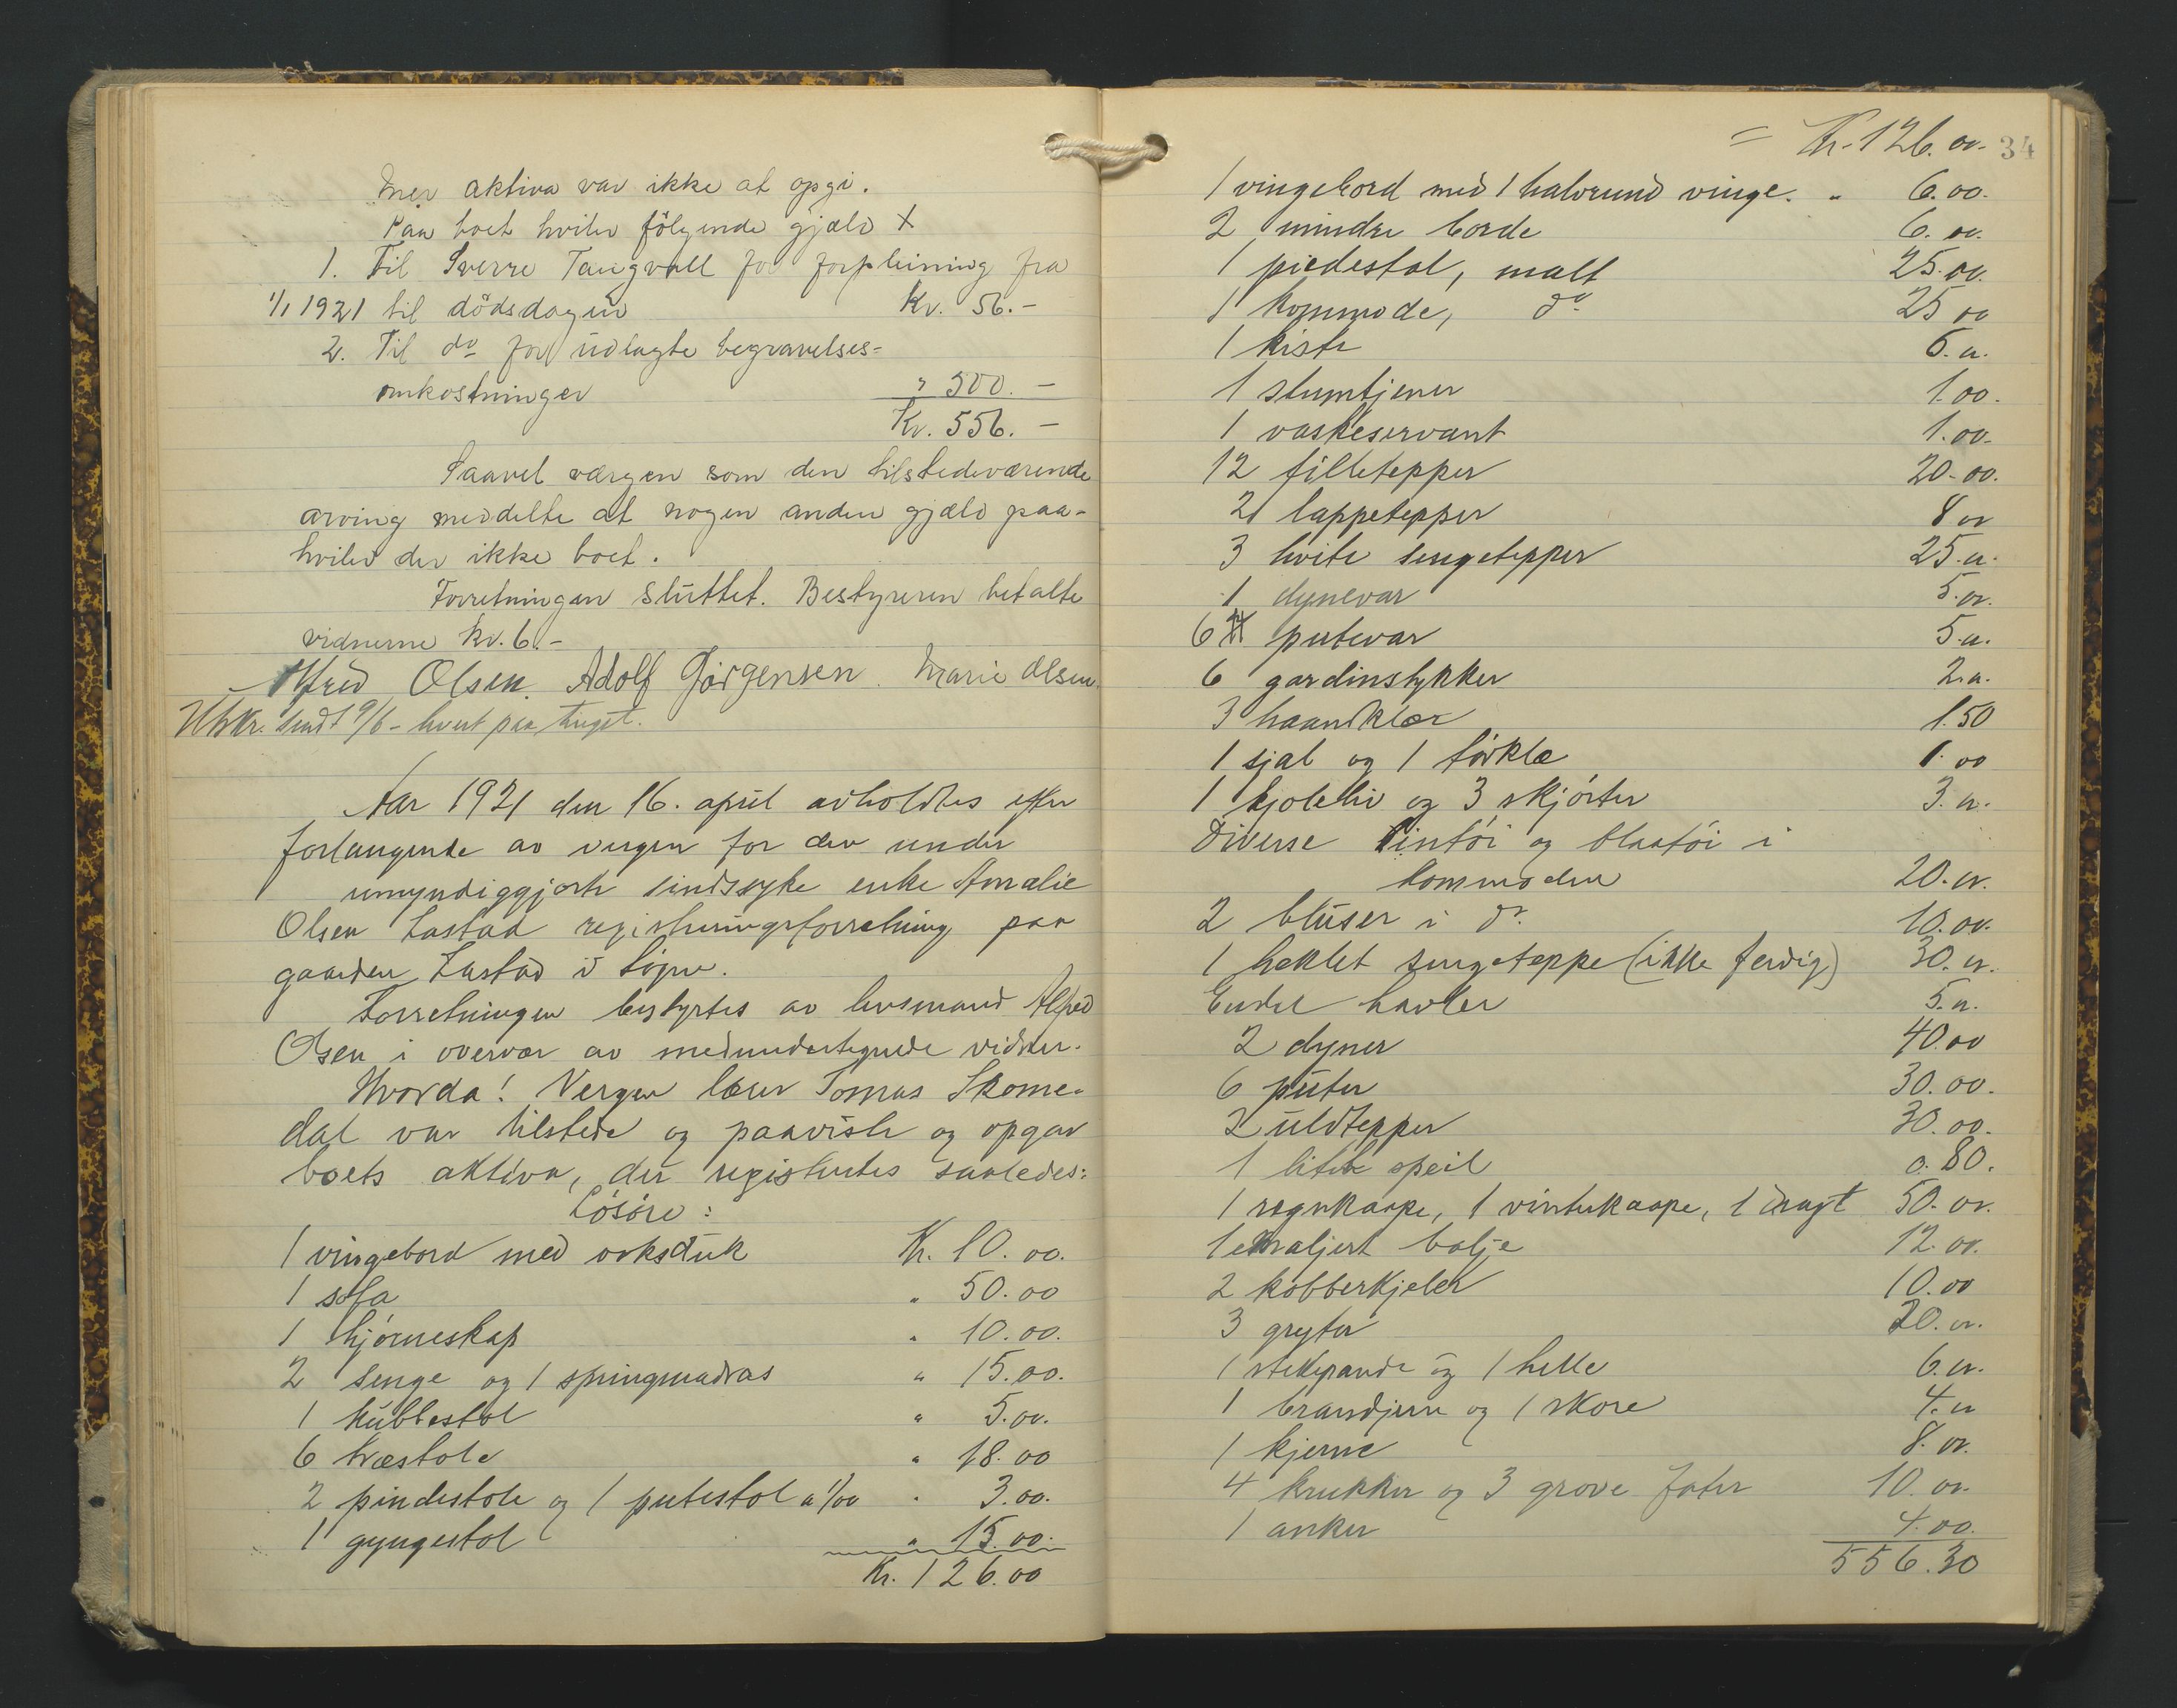 Mer aktiva var ikke at opgi.
Paa boet hviler följende gjæld
1. Til Sverre Tangvall for forpleining fra
1/1 1921 til dödsdagen Kr. 56.-
2. Til do for udlagte begravelses-
omkostninger " 500.-
Kr. 556.-
Saavel værgen som den tilstedeværende
arving meddelte at nogen anden gjæld paa-
hviler der ikke boet.
Forretningen sluttet. Bestyreren betalte
vidnerne kr. 6.-
Alfred Olsen. Adolf Jörgensen. Marie Olsen.
Utskr. sendt 9/6 - hvert paa tinget.
Aar 1921 den 16. april avholdtes efter
forlangende av vergen for den under
umyndiggjorte sindssyke enke Amalie
Olsen Lastad registreringsforretning paa
gaarden Lastad i Søgne.
Forretningen bestyrtes av lensmand Alfred
Olsen i overvær av medundertegnede vidner.
Hvorda! Vergen lærer Tomas Skome-
dal var tilstede og paaviste og opgav
boets aktiva, der registrertes saaledes:
Løsøre:
1 vingebord med voksduk Kr. 10.00.
1 sofa " 50.00
1 hjørneskap " 10.00.
2 senge og 1 springmadras " 15.00.
1 kubbestol " 5.00.
6 træstole " 18.00
2 pindestole og 1 putestol a 1/00 " 3.00.
1 gyngestol " 15.00.
Kr. 126.00
= Kr. 126.00. 34
1 vingebord med 1 halvrund vinge. " 6.00.
2 mindre borde 6.00.
1 piedestal, malt 25.00.
1 kommode, do 25 00
1 kiste 5.00.
1 stumtjener 1.00.
1 vaskeservant 1.00.
12 filletepper 20.00.
2 lappetepper 8 00
3 hvite sengetepper 25.00.
1 dynevar 5.00.
6 putevar 5.00.
6 gardinstykker 2.00.
3 haandklær 1.50
1 sjal og 1 tørklæ 1.00
1 kjoleliv og 3 skjørter 3.00.
Diverse lintøi og blaatøi i
kommoden 20.00.
2 bluser i do. 10.00.
1 heklet sengeteppe (ikke ferdig) 30.00.
Endel kavler 5.00.
2 dyner 40.00
6 puter 30.00.
2 uldtepper 30.00.
1 litet speil 0.80.
1 regnkaape, 1 vinterkaape, 1 dragt 50.00.
1 emaljert balje 12.00.
2 kobberkjeler 10.00
3 gryter 20.00.
1 stekepande og 1 helle 6.00.
1 brandjern og 1 skore 4.00
1 kjerne 8.00.
4 krukker og 3 grove fater 10.00.
1 anker 4.00.
556.30